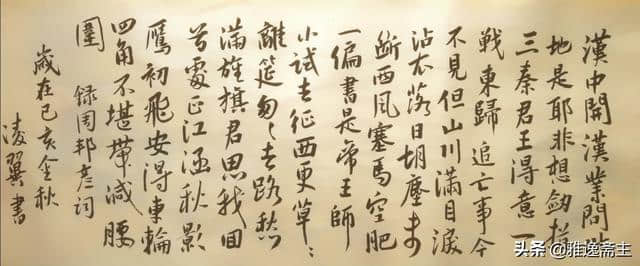 漢中開漢業問此
地是耶非想劍指
三秦君王得意一
戰東歸追亡事今
不見但山川滿目淚
沾衣落日胡塵未
斷西風塞馬空肥
一編書是帝王師
小試去征西更草々
離筵匆々去路愁
滿旌旗君思我回
首處正江涵秋影
雁初飛安得車輪
四角不堪帶減腰
圍 録周邦彦詞
歲在己亥金秋
凌翼書
头条 @雅逸斋主